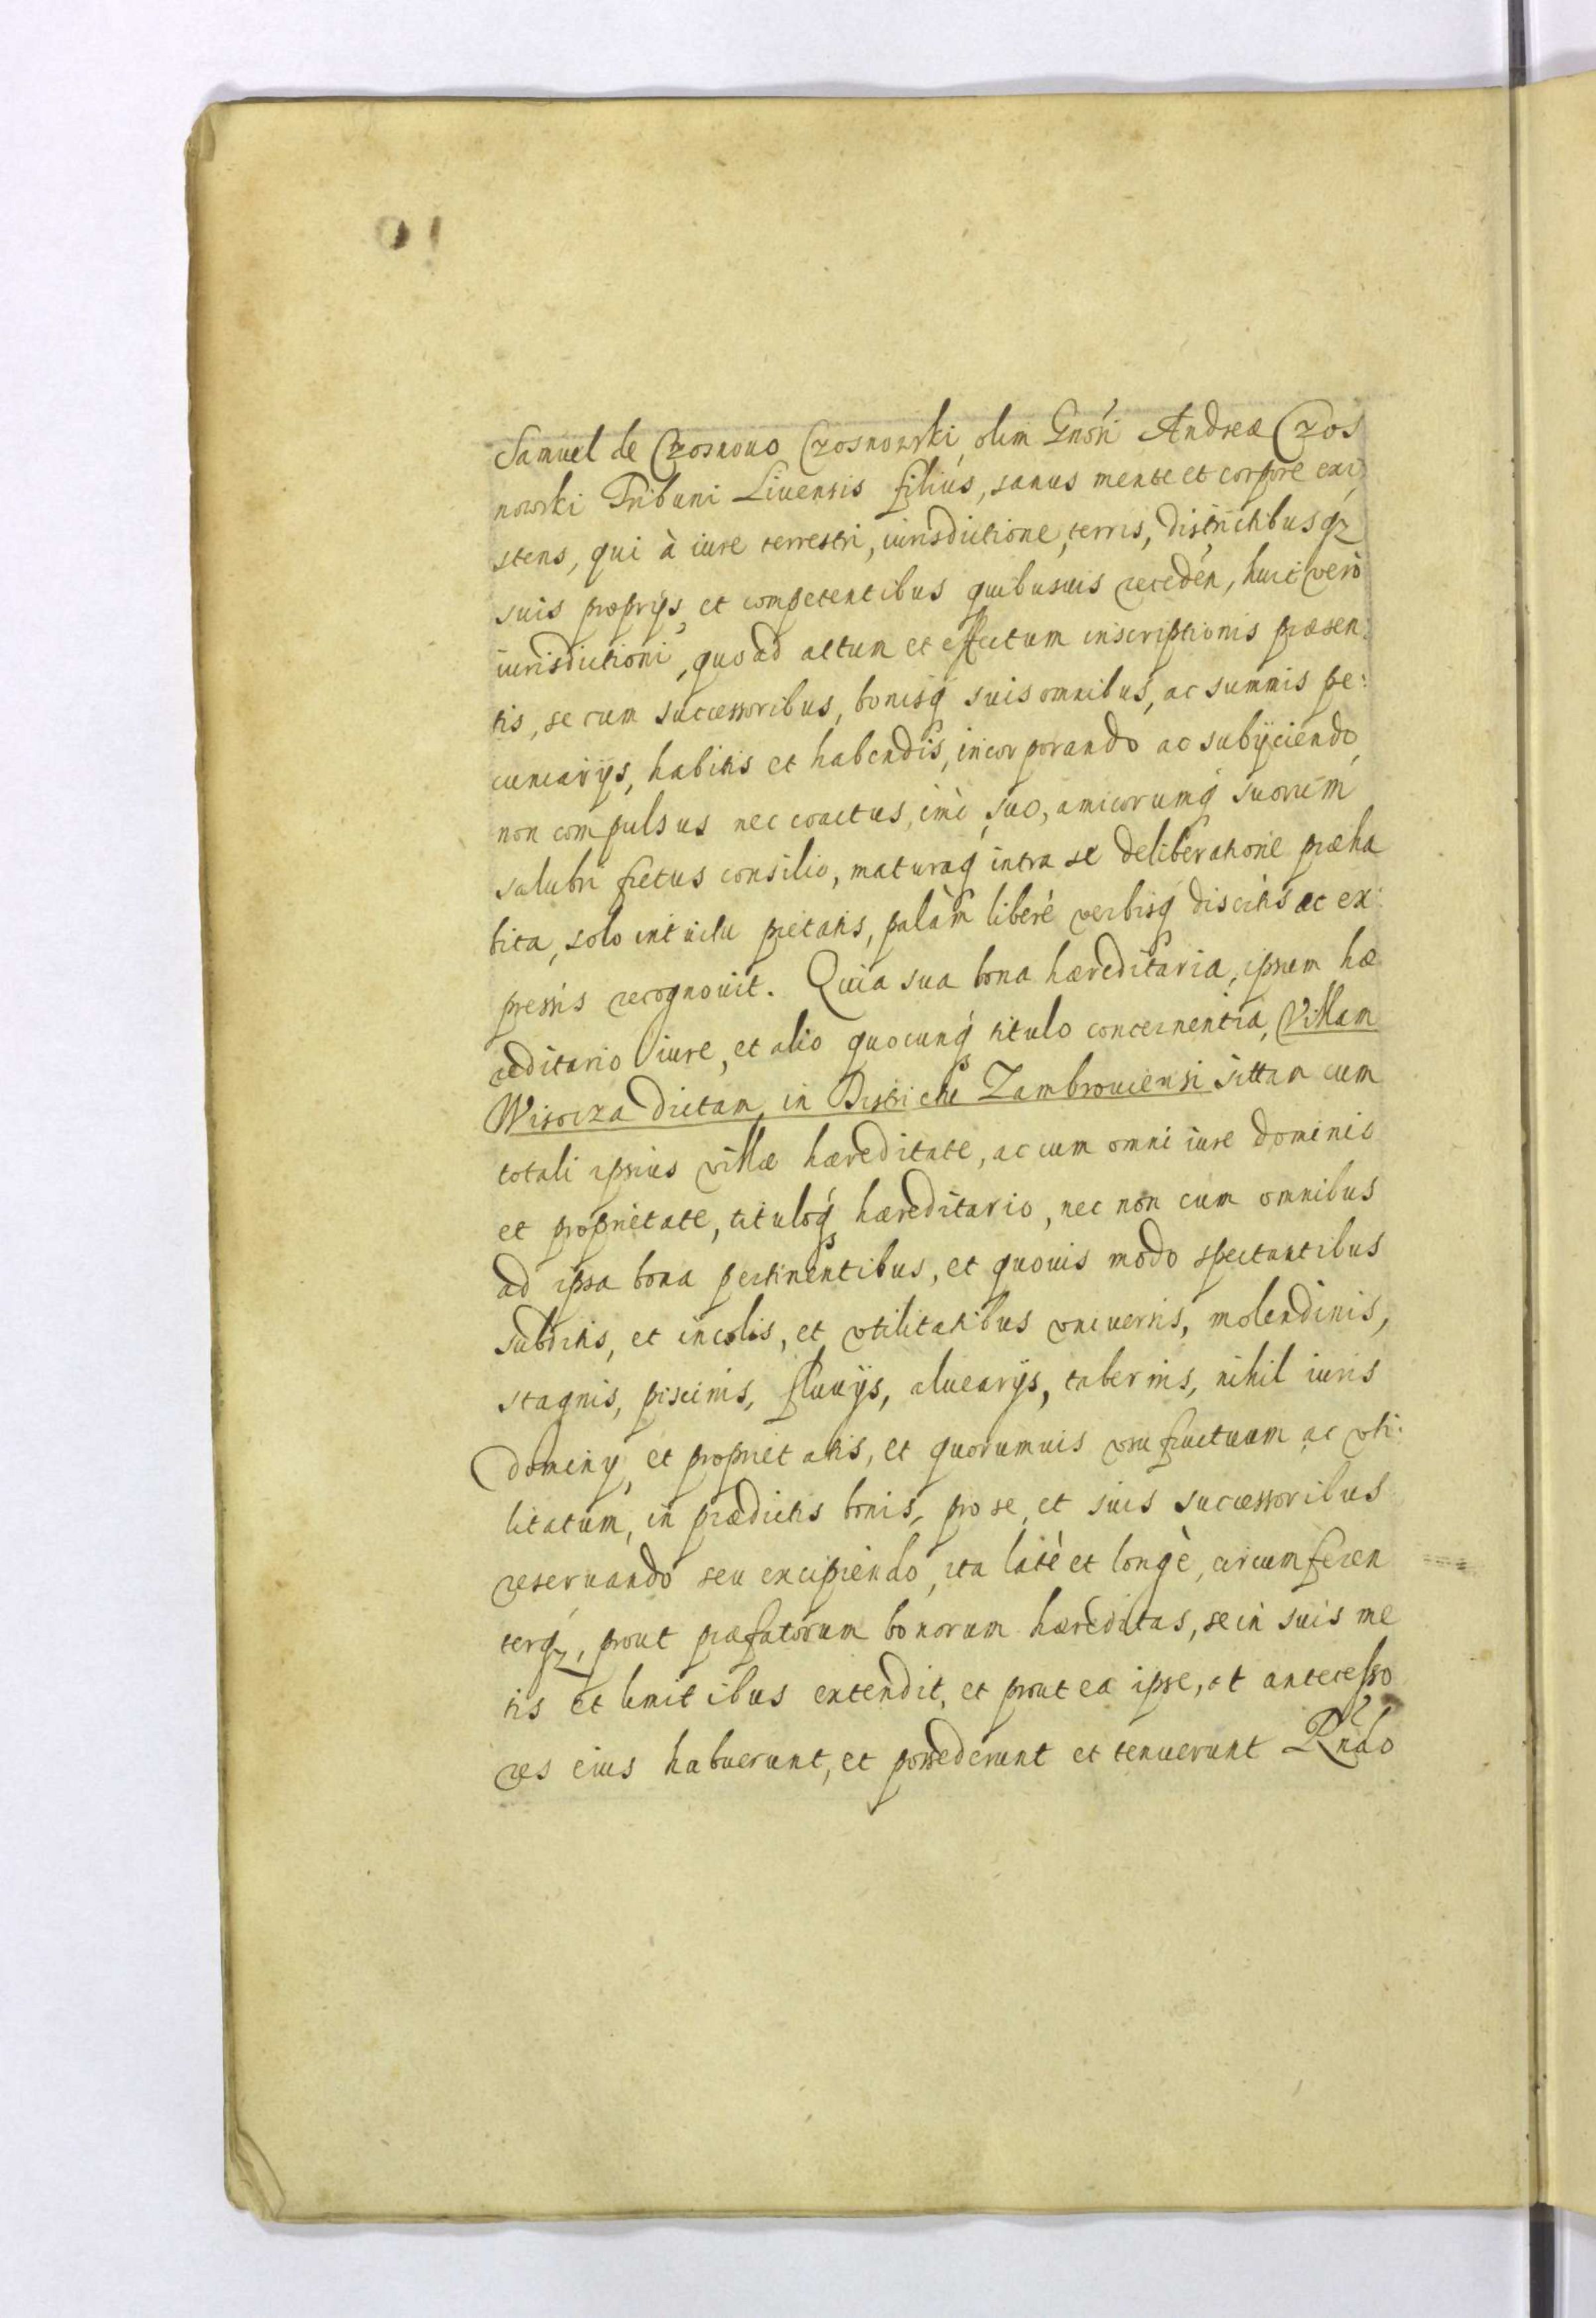 Samuel de Czosnowo Czosnowski, olim Gnosi Andreæ Czos
nowski Tribuni Liuensis filius, sanus mente et corpore exi
stens, qui à iure terrestri, iurisdictione, terris, districtibusq3
suis proprijs, et competentibus quibusuis recedén, huic verò
iurisdictioni, quoad actum et effectum inscriptionis præsen:
tis, se cum successoribus, bonisq́ suis omnibus, ac summis pe:
cuniarijs, habitis et habendis, incorporando ac subijciendo,
non compulsus nec coactus, imò suo, amicorumq́ suorum
salubri fretus consilio, maturaq́ intra se deliberatione præha
bita, solo intuitu pietatis, palàm liberè verbisq́ discretis ac ex:
pressis recognouit. Quia sua bona hæreditaria, ipsum hæ
reditario iure, et alio quocunq́ titulo concernentia, Villam
Wisocza dictam, in Districtu Zambrouiensi sittam cum
totali ipsius villæ hæreditate, ac cum omni iure dominio
et proprietate, tituloq́ hæreditario, nec non cum omnibus
ad ipsa bona pertinentibus, et quouis modo spectantibus
subditis, et incolis, et vtilitatibus vniuersis, molendinis,
stagnis, piscinis, fluuijs, aluearijs, tabernis, nihil iuris
dominij, et proprietatis, et quorumuis vsufructuum ac vti:
litatum, in prædictis bonis, pro se, et suis successoribus
reseruando seu excipiendo, ita latè et longè, circumferen
terq3, prout præfatorum bonorum hæreditas, se in suis me
tis et limitibus extendit, et prout ea ipse, et antecesso
res eius habuerunt, et possederunt et tenuerunt Rndo